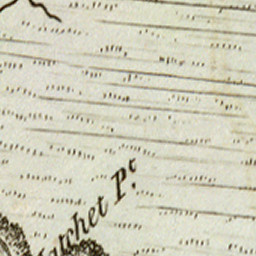 atchet P.t